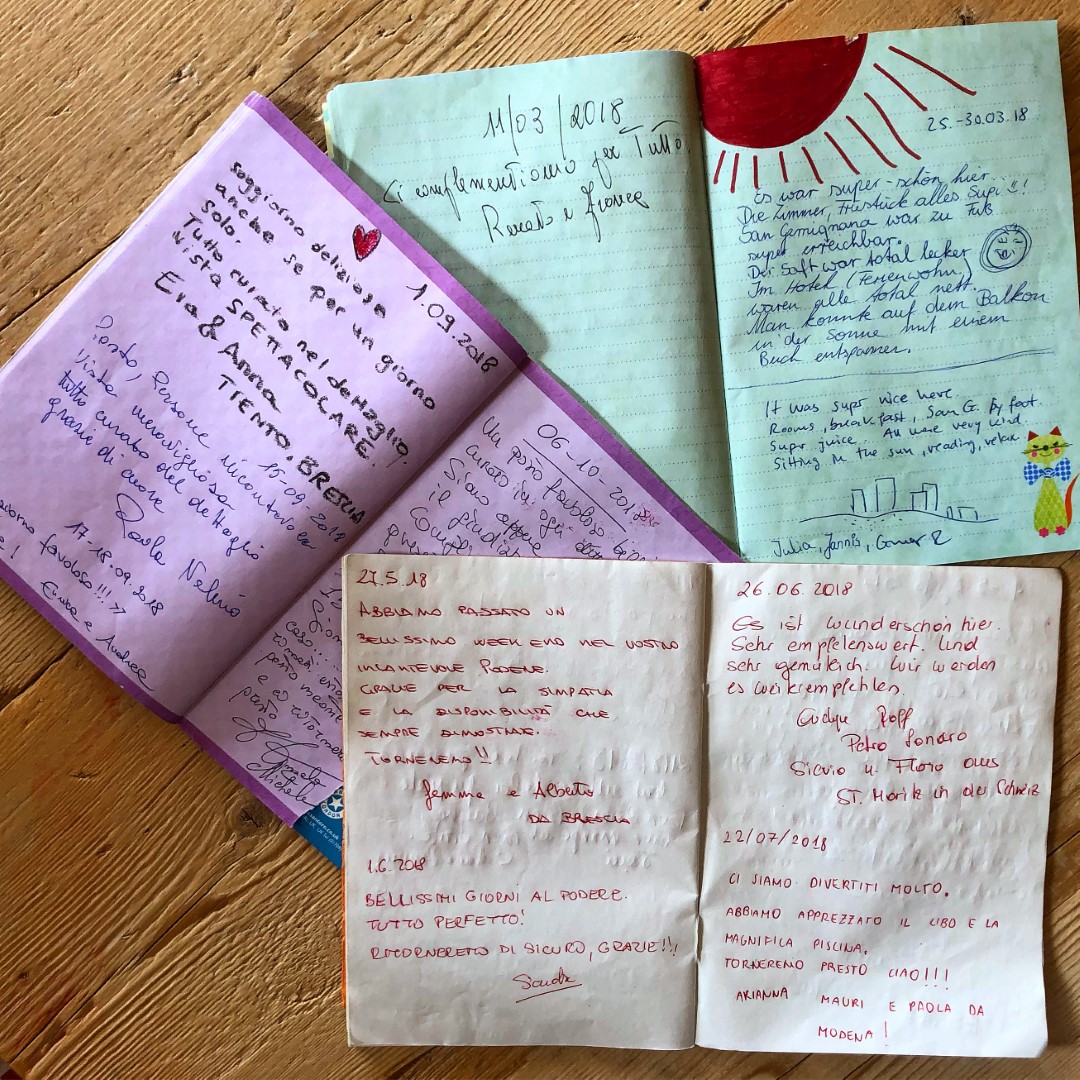 11/03/2018
Ci complimentiamo per Tutto.
Renato e Franca
25.-30.03.18
Es war super-schön hier...
Die Zimmer, Frustück alles Supi!!!
San Gemignana war zu Fuß
super erreichbar.
Der Saft war total lecker
Im Hotel (Ferienwohn.)
waren alle total nett.
Man konnte auf dem Balkon
in der Sonne mit einem
Buch entspannen.
It was supr nice here.
Rooms, breakfast, San G. by foot.
Supr juice. All were very kind.
Sitting in the sun, reading, relax.
Julia, Jannis,
1.09.2018
soggiorno delizioso
anche se per un giorno
solo.
Tutto curato nel dettaglio.
Vista SPETTACOLARE.
Eva & Anna
TIENTO. BRESCIA
15-09-2018
Posto, Persone
Vista meravigliosa
tutto curato nel dettaglio
grazie di cuore
Paola
17-18.09.2018
favoloso!!! >>
e Andrea
06-10-201
Un posto favoloso
curato in ogni
Siamo
il
caso...
posto
e ci
presto
Michele
27.5.18
ABBIAMO PASSATO UN
BELLISSIMO WEEK END NEL VOSTRO
INCANTEVOLE PODERE.
GRAZIE PER LA SIMPATIA
E LA DISPONIBILITÀ CHE
SEMPRE DIMOSTRATE.
TORNEREMO!!
Gemma e Alberto
DA BRESCIA
1.6.2018
BELLISSIMI GIORNI AL PODERE.
TUTTO PERFETTO!
RITORNEREMO DI SICURO, GRAZIE!!!
26.06.2018
Es ist wunderschön hier.
Sehr empfelenswert. Und
sehr gemütlich. Wir werden
es weiterempfehlen.
Silvio u. Flora aus
ST. Moritz in der Schweiz
22/07/2018
CI SIAMO DIVERTITI MOLTO.
ABBIAMO APPREZZATO IL CIBO E LA
MAGNIFICA PISCINA.
TORNEREMO PRESTO CIAO!!!
ARIANNA MAURI E PAOLA DA
MODENA!